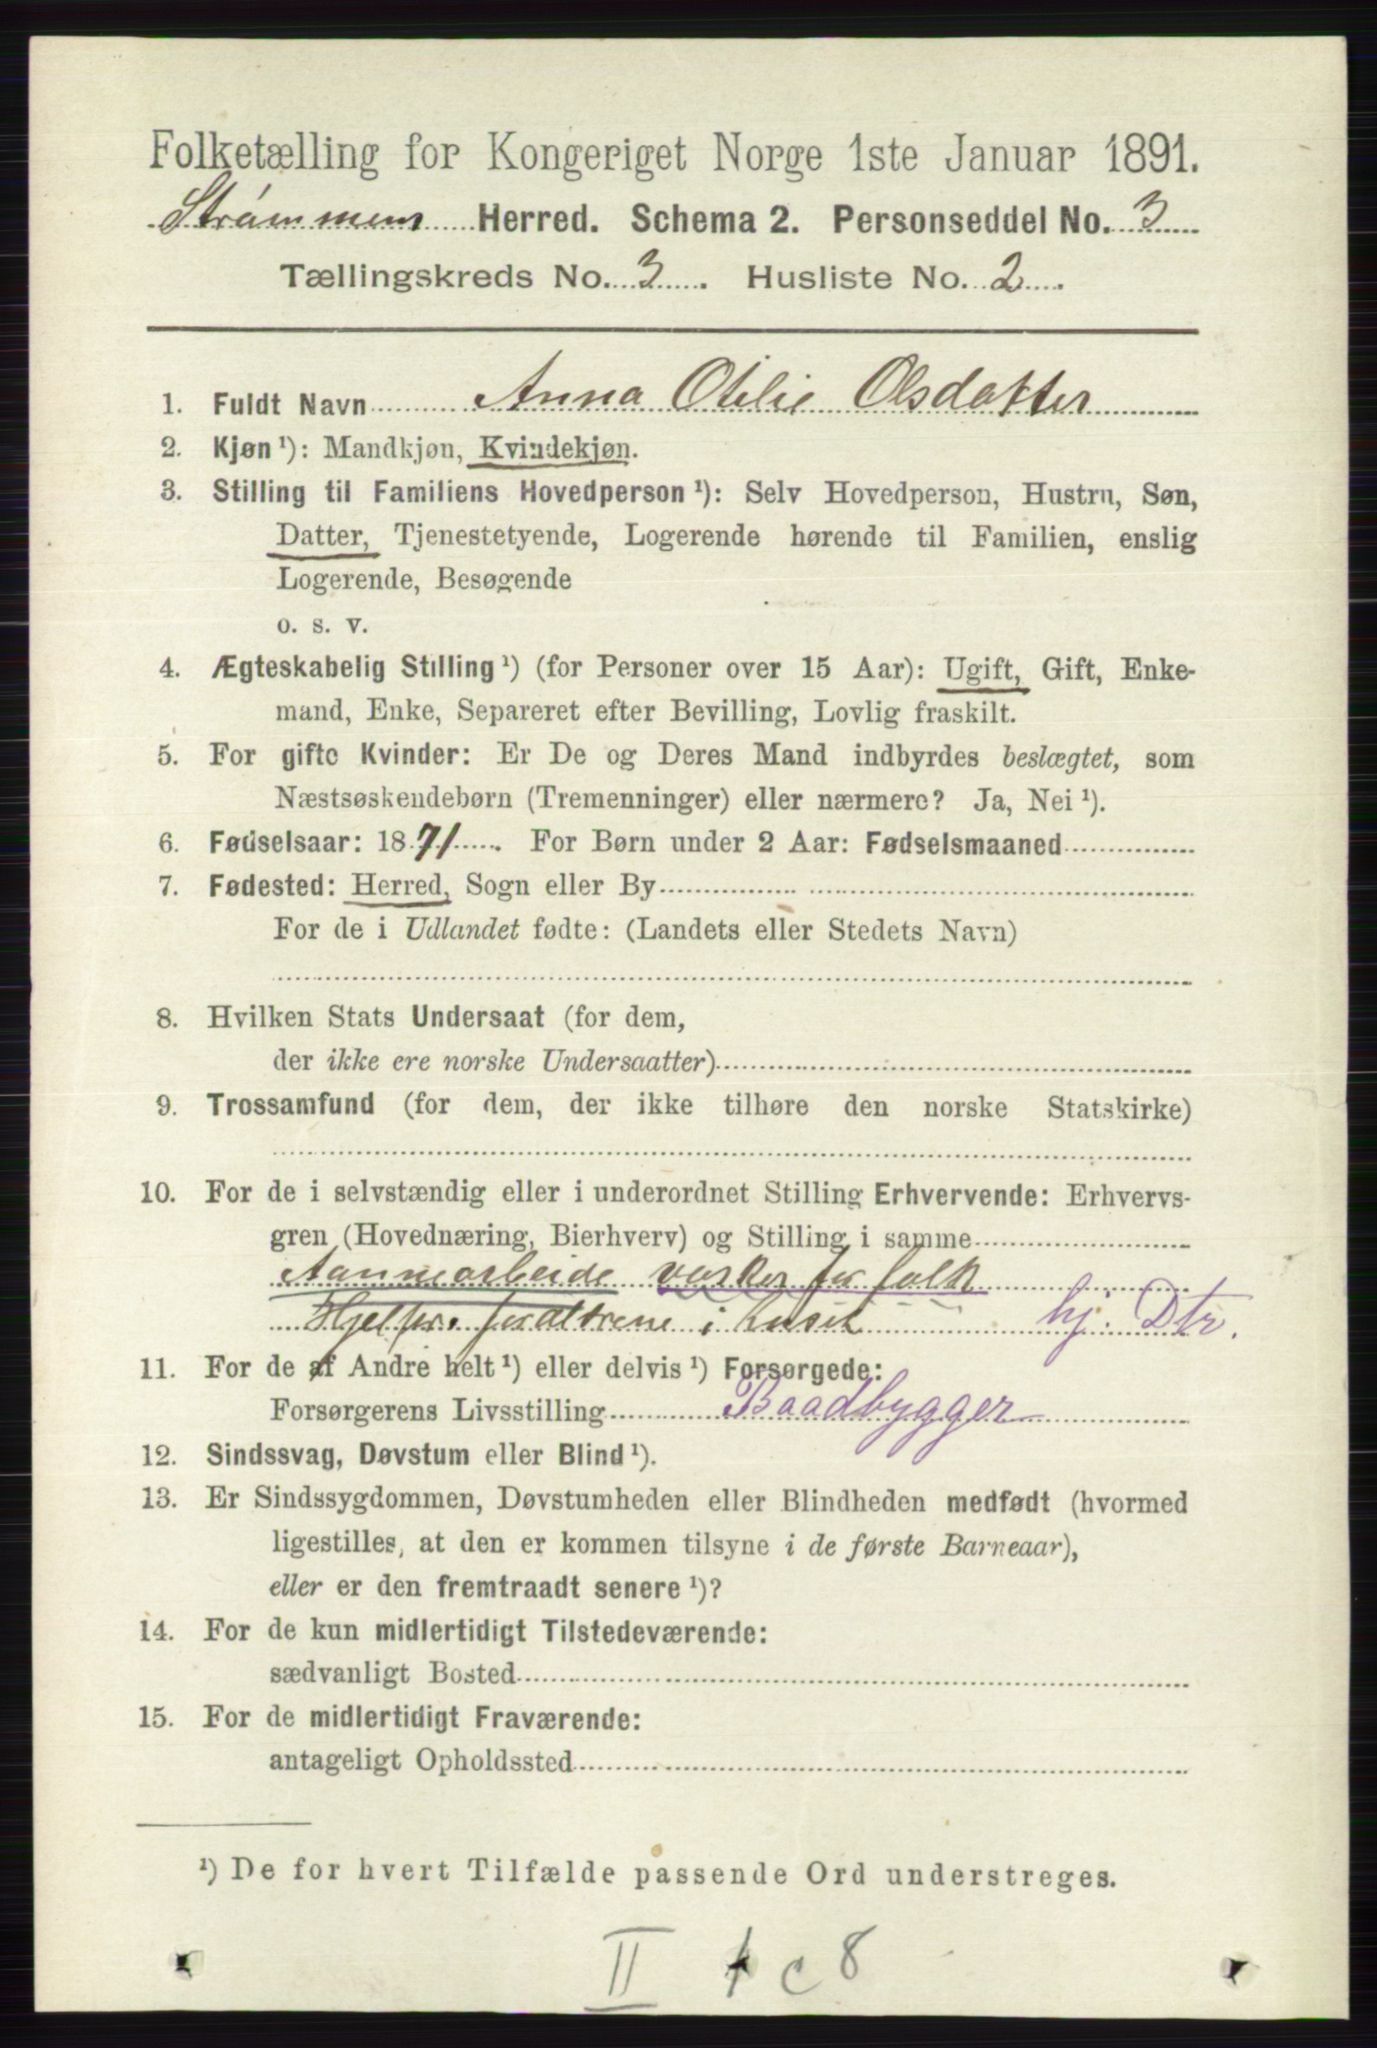 Folketælling for Kongeriget Norge 1ste Januar 1891.
Strømmens Herred. Schema 2. Personseddel No. 3
Tællingskreds No. 3. Husliste No. 2.
1. Fuldt Navn Anna Otelie Olsdatter
2. Kjøn ¹): Mandkjøn, Kvindekjøn.
3. Stilling til Familiens Hovedperson ¹): Selv Hovedperson, Hustru, Søn,
Datter, Tjenestetyende, Logerende hørende til Familien, enslig
Logerende, Besøgende
o. s. v.
4. Ægteskabelig Stilling ¹) (for Personer over 15 Aar): Ugift, Gift, Enke-
mand, Enke, Separeret efter Bevilling, Lovlig fraskilt.
5. For gifte Kvinder: Er De og Deres Mand indbyrdes beslægtet, som
Næstsøskendebørn (Tremenninger) eller nærmere? Ja, Nei ¹).
6. Fødselsaar: 1871. For Børn under 2 Aar: Fødselsmaaned
7. Fødested: Herred, Sogn eller By
For de i Udlandet fødte: (Landets eller Stedets Navn)
8. Hvilken Stats Undersaat (for dem,
der ikke ere norske Undersaatter)
9. Trossamfund (for dem, der ikke tilhøre den norske Statskirke)
10. For de i selvstændig eller i underordnet Stilling Erhvervende: Erhvervs-
gren (Hovednæring, Bierhverv) og Stilling i samme
vasker for folk
Hjelper foraldrene i huset hj. Dtr.
11. For de af Andre helt ¹) eller delvis ¹) Forsørgede:
Forsørgerens Livsstilling Baadbygger
12. Sindssvag, Døvstum eller Blind ¹).
13. Er Sindssygdommen, Døvstumheden eller Blindheden medfødt (hvormed
ligestilles, at den er kommen tilsyne i de første Barneaar),
eller er den fremtraadt senere ¹)?
14. For de kun midlertidigt Tilstedeværende:
sædvanligt Bosted
15. For de midlertidigt Fraværende:
antageligt Opholdssted
¹) De for hvert Tilfælde passende Ord understreges.
II c 8